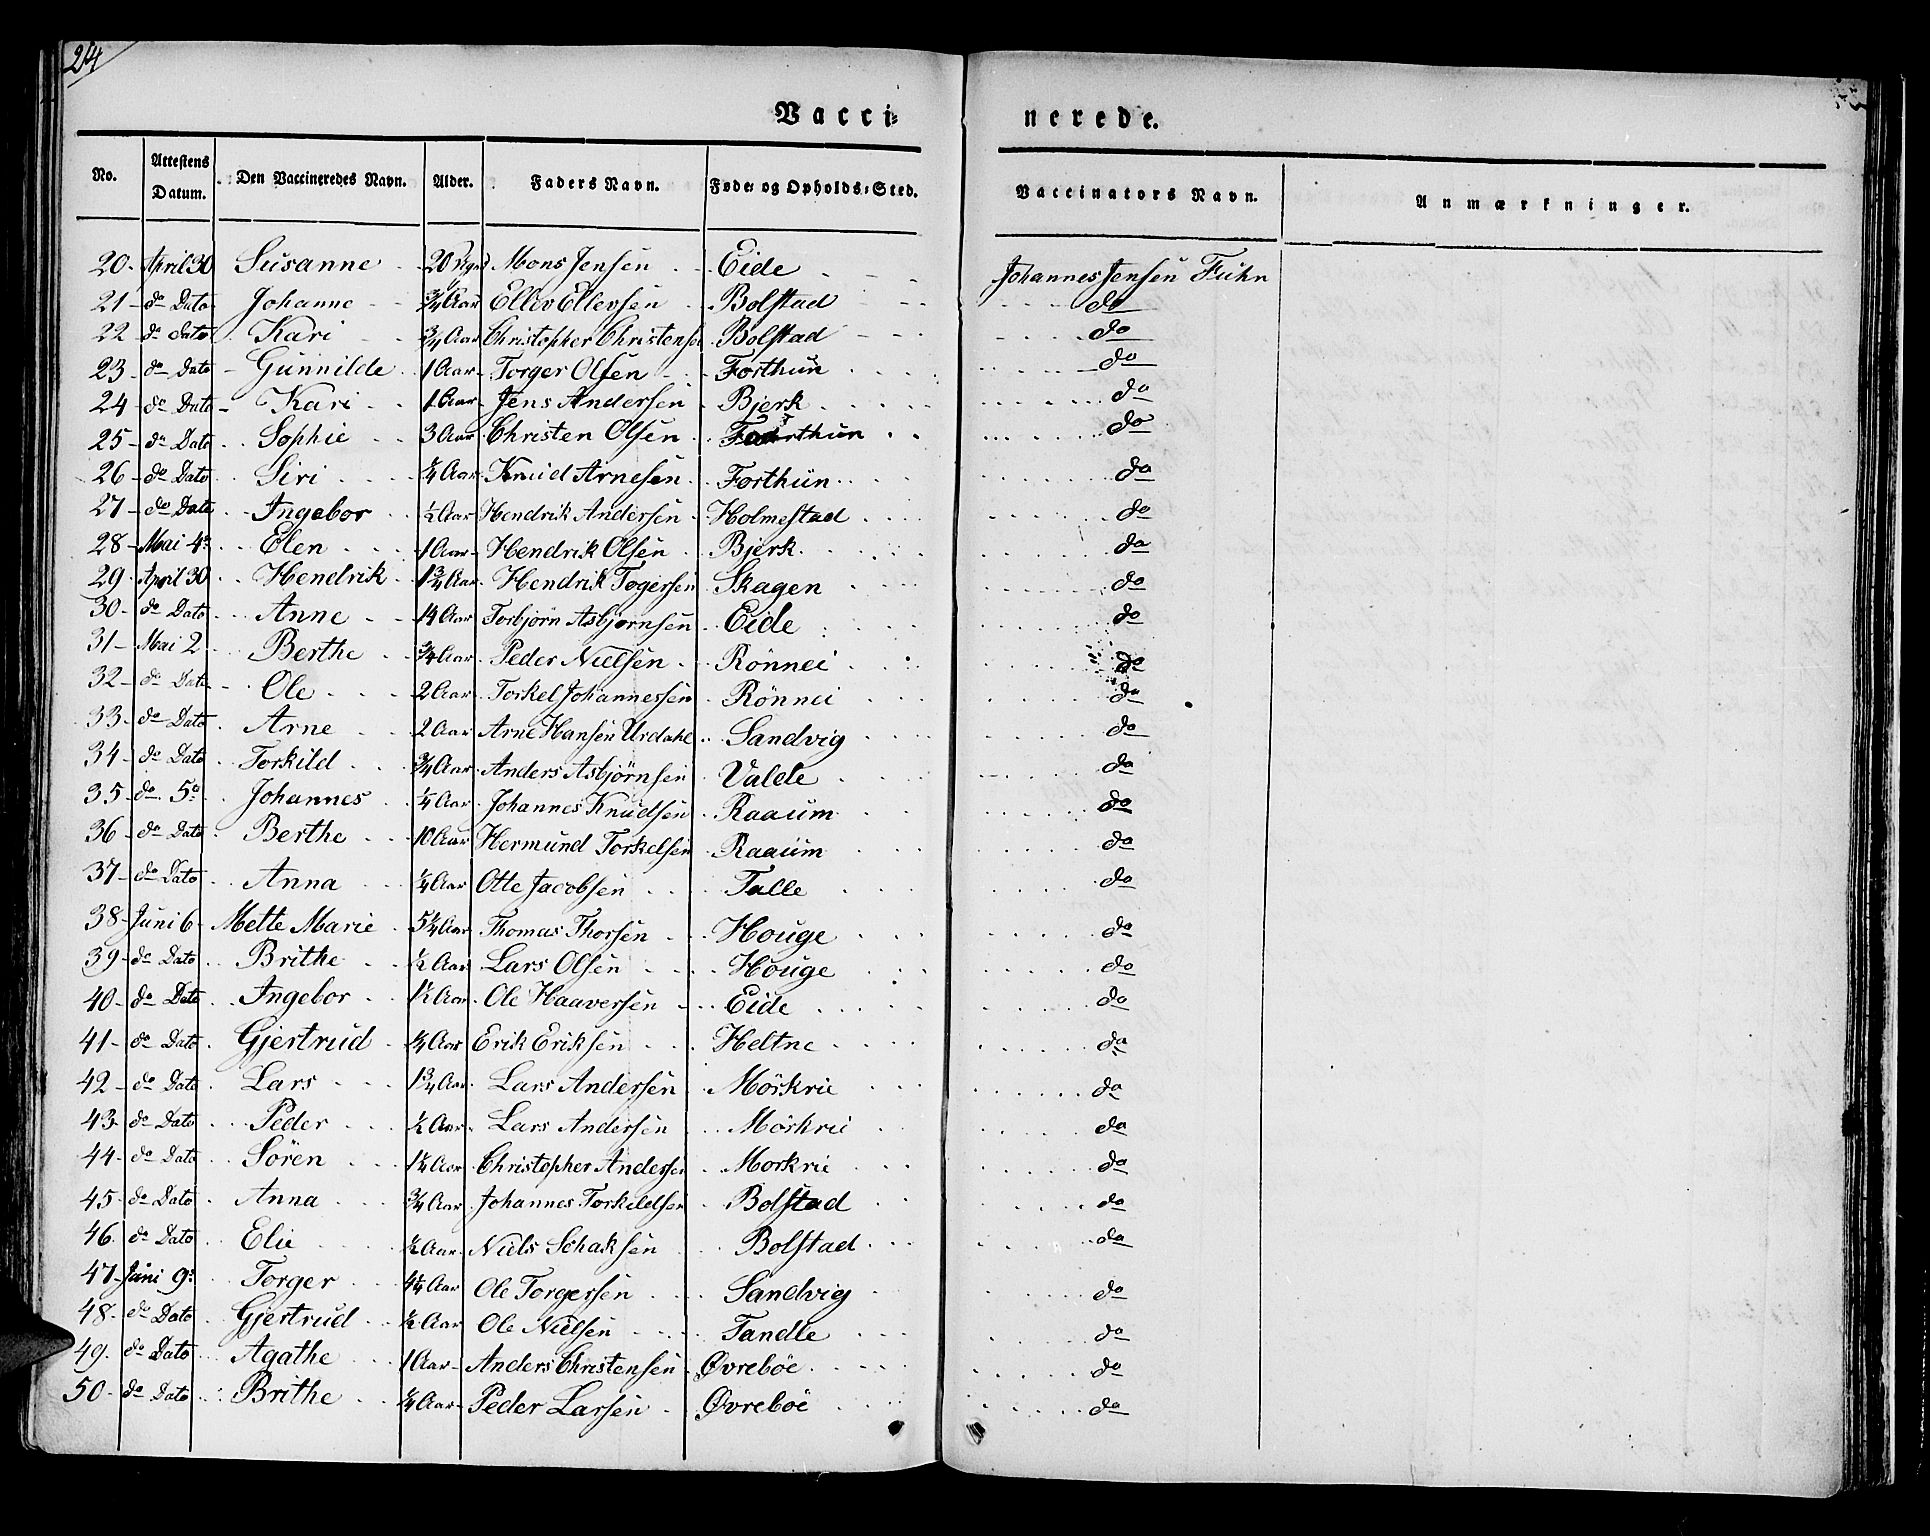 24
Vacci= nerede.
No. Attestens Datum. Den Vaccineredes Navn. Alder. Faders Navn. Føde= og Opholds=Sted. Vaccinators Navn. Anmærkninger.
20 - April 30 Susanne 20 Mons Jensen Eide Johannes Jensen Fuhn
21 - do Dato Johanne 3/4 Aar Eller Ellersen Bolstad do
22 - do Dato Kari 3/4 Aar Christopher Christensen Bolstad do
23 - do Dato Gunnilde 1 Aar Torger Olsen Forthun do
24 - do Dato Kari 1 Aar Jens Andersen Bjerk do
25 - do Dato Sophie 3 Aar Christen Olsen Forthun do
26 - do Dato Siri Aar Knud Arnesen Forthun do
27 - do Dato Ingebor 1/2 Aar Hendrik Andersen Holmestad do
28 - Mai 4 Elen 1 Aar Hendrik Olsen Bjerk do
29 - April 30 Hendrik 1 3/4 Aar Hendrik Togersen Skagen do
30 - do Dato Anne Aar Torbjørn Asbjørnsen Eide do
31 - Mai 2 Berthe 3/4 Aar Peder Nielsen Rönnei do
32 - do Dato Ole 2 Aar Torkel Johannessen Rönnei do
33 - do Dato Arne 2 Aar Arne Hansen Urdahl Sandvig do
34 - do Dato Torkild 3/4 Aar Anders Asbjørnsen Valde do
35 - do 5 Johannes 1/4 Aar Johannes Knudsen Raaum do
36 - do Dato Berthe 10 Aar Hermund Torkelsen Raaum do
37 - do Dato Anna 1/4 Aar Otte Jacobsen Talle do
38 - Juni 6 Mette Marie 5 1/4 Aar Thomas Thorsen Houge do
39 - do Dato Brithe 1/2 Aar Lars Olsen Houge do
40 - do Dato Ingebor 1 1/2 Aar Ole Haaversen Eide do
41 - do Dato Gjertrud Aar Erik Eriksen Heltne do
42 - do Dato Lars 1 3/4 Aar Lars Andersen Mörkrie do
43 - do Dato Peder 1/2 Aar Lars Andersen Mörkrie do
44 - do Dato Sören Aar Christopher Andersen Morkrie do
45 - do Dato Anna 3/4 Aar Johannes Torkildsen Bolstad do
46 - do Dato Elie 1/2 Aar Niels Schaksen Bolstad do
47 - Juni 9 Torger 4 1/2 Aar Ole Torgersen Sandvig do
48 - do Dato Gjertrud 1/2 Aar Ole Nielsen Tandle do
49 - do Dato Agathe 1 Aar Anders Christensen Øvreböe do
50 - do Dato Brithe Aar Peder Larsen Øvreböe do